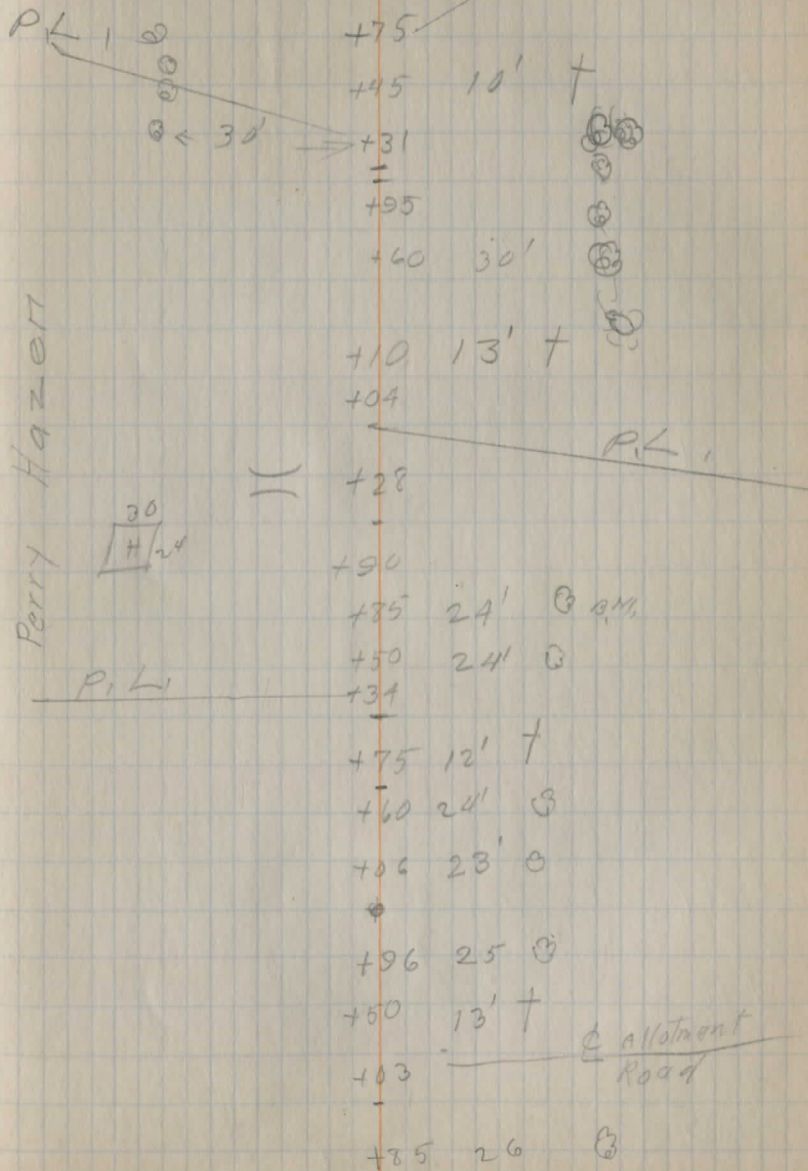 P.L. +75
+45 10' †
← 30' +31
+95
+60 30'
+10 13' †
+04
P.L.
+28
Perry Hazen
30
H 24
+90
+85 24' B.M.
+50 24'
P.L. +34
+75 12' †
+60 24'
+06 23'
+96 25
+50 13' †
℄ Allotment
Road
+03
+85 26